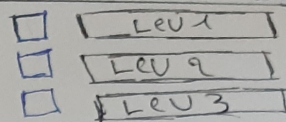 Lev 1
Lev 2
Lev 3